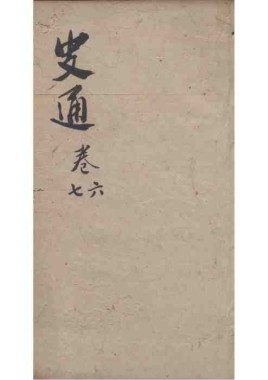 史通
卷
六七